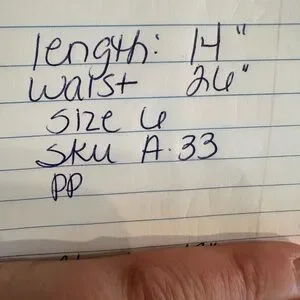 length: 14"
waist 26"
size 6
SKU A.33
PP